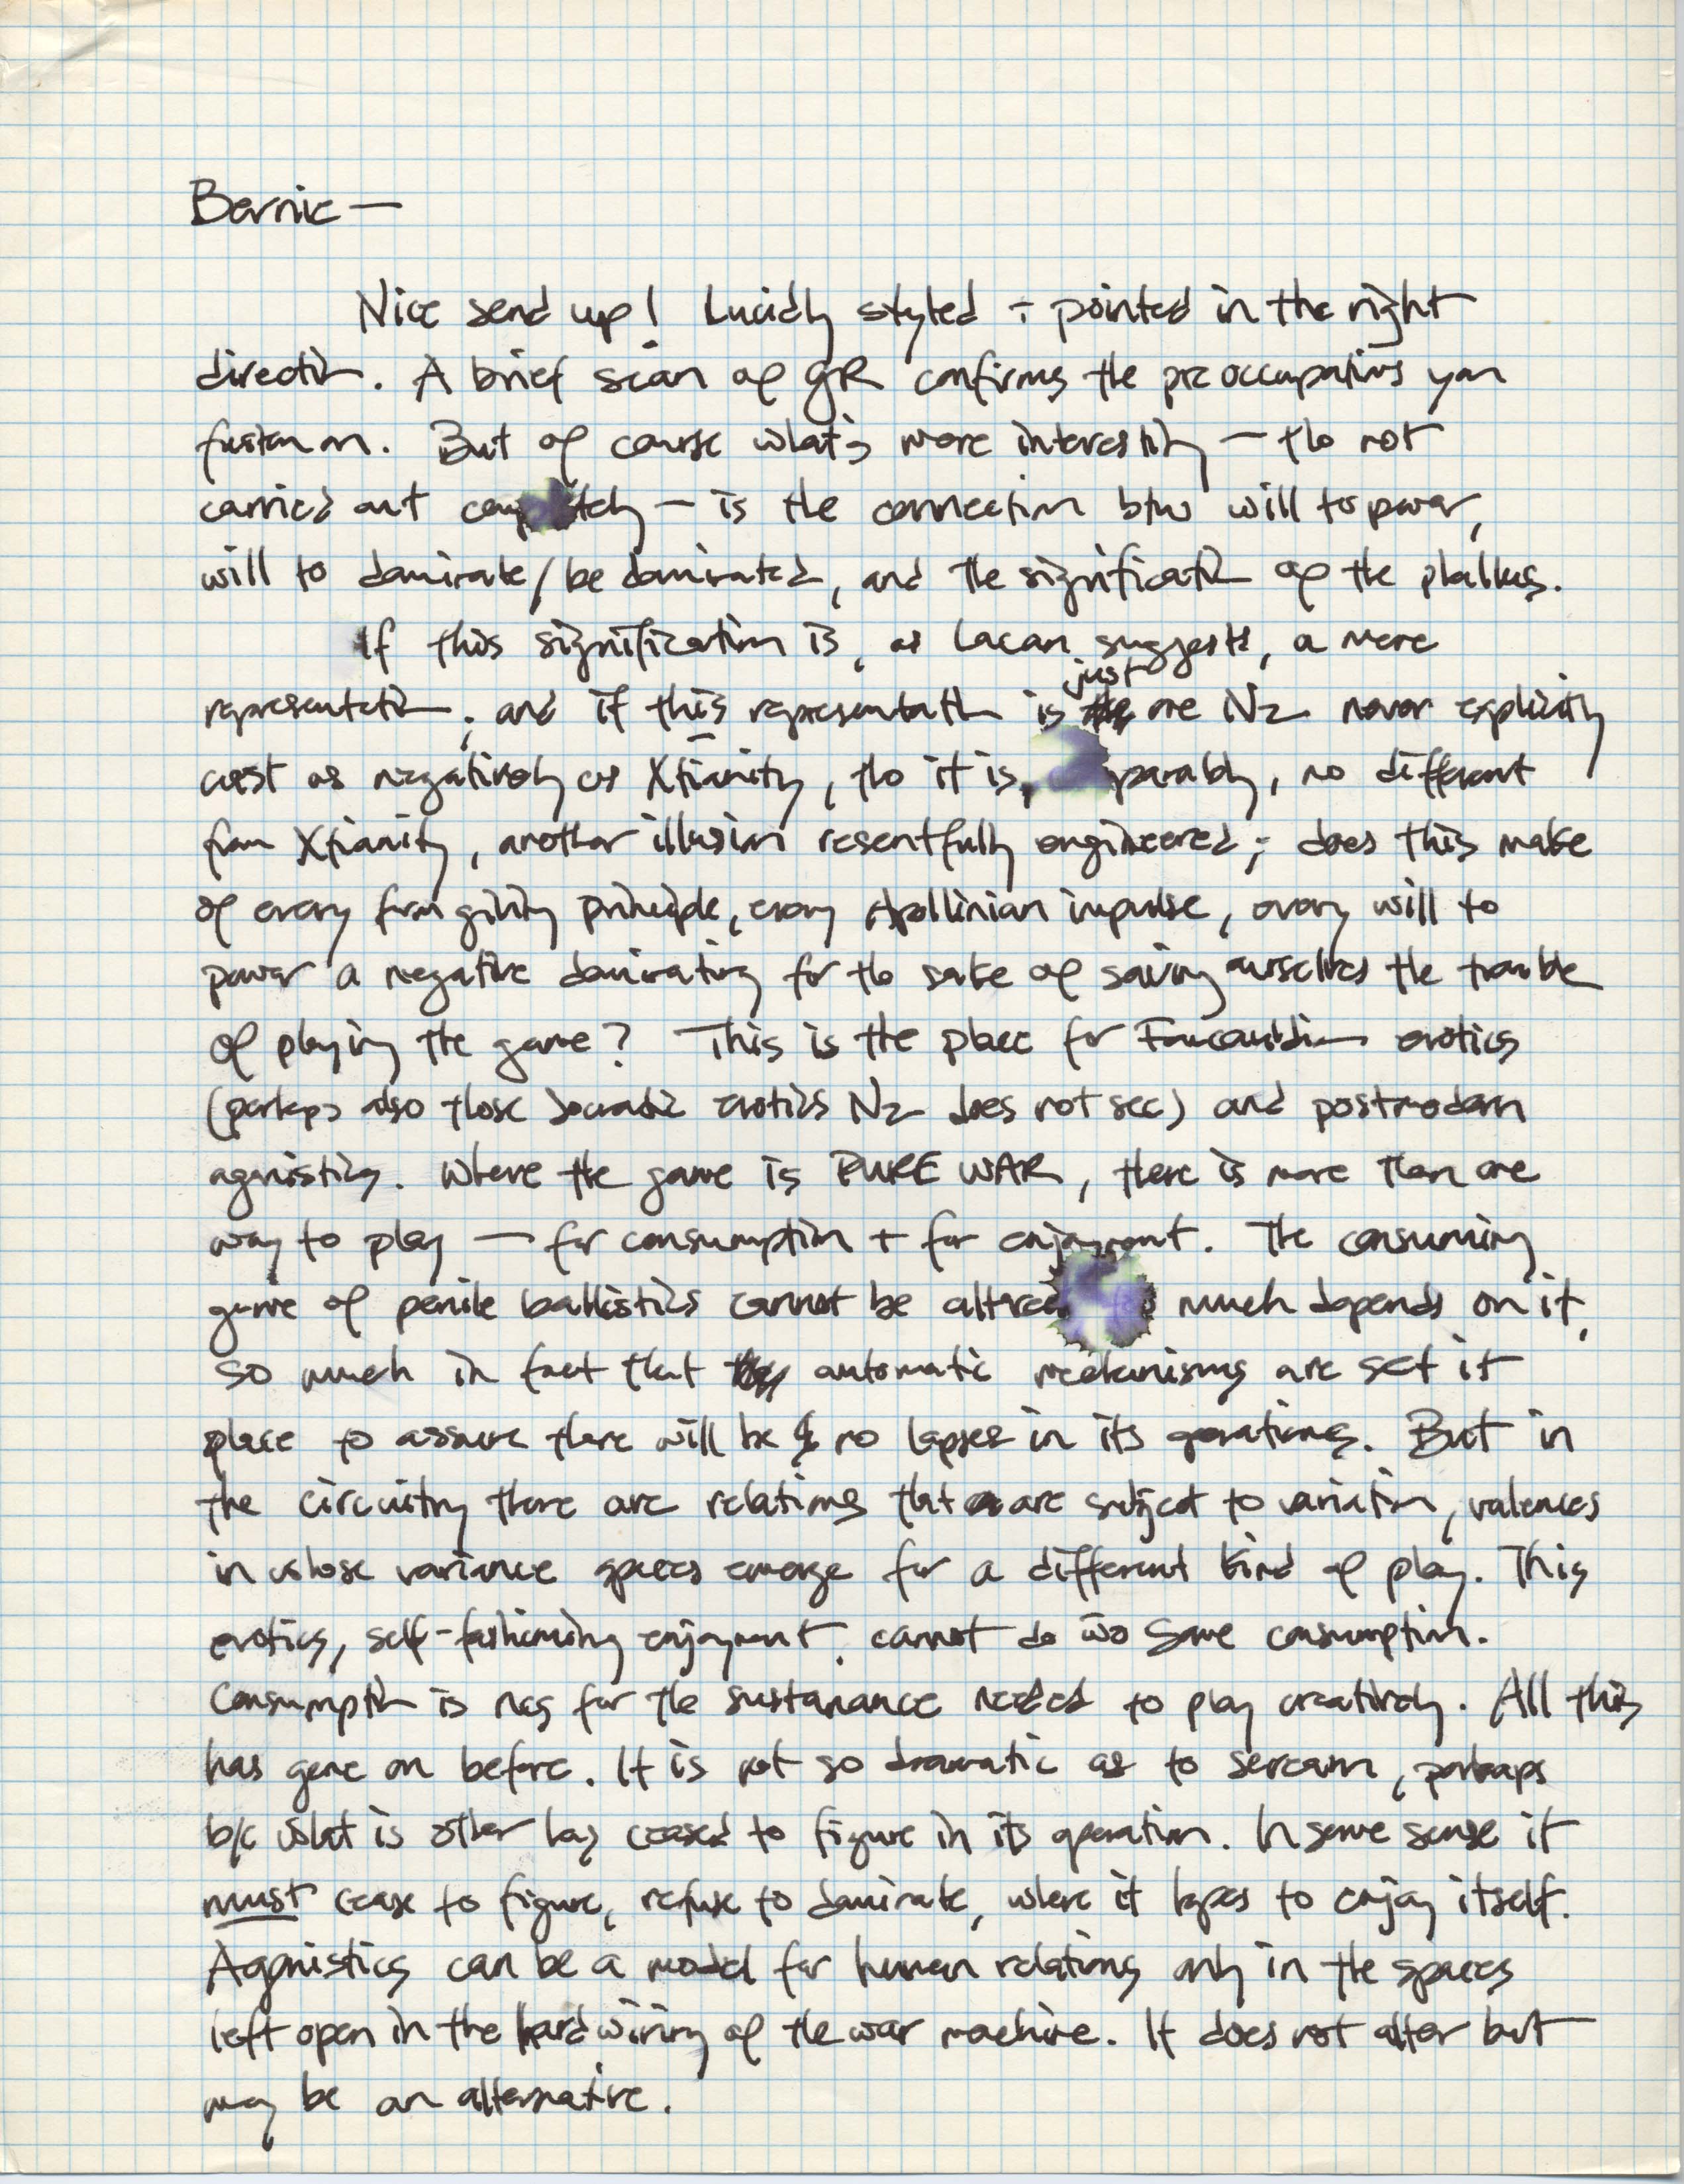 Bernie —
Nice send up! Lucidly styled + pointed in the right
direction. A brief scan of GR confirms the preoccupations you
fasten on. But of course what's more interesting — tho not
carried out completely — is the connection btw will to power,
will to dominate/be dominated, and the signification of the phallus.
If this signification is, as Lacan suggests, a mere
representation; and if this representation is just one Nz never explicitly
cast as negatively as Xtianity, tho it is, parably, no different
from Xtianity, another illusion resentfully engineered; does this make
of every form giving principle, every Apollinian impulse, every will to
power a negative dominating for the sake of saving ourselves the trouble
of playing the game? This is the place for Foucauldian erotics
(perhaps also those Socratic erotics Nz does not see) and postmodern
agonistics. Where the game is PURE WAR, there is more than one
way to play — for consumption + for enjoyment. The consuming
game of penile ballistics cannot be altered much depends on it,
so much in fact that automatic mechanisms are set it
place to assure there will be no lapses in its operations. But in
the circuitry there are relations that are subject to variation, valences
in whose variance spaces emerge for a different kind of play. This
erotics, self-fashioning enjoyment, cannot do w/o some consumption.
Consumption is nes for the sustanance needed to play creatively. All this
has gone on before. It is not so dramatic as to scream, perhaps
b/c what is other has ceased to figure in its operation. In some sense it
must cease to figure, refuse to dominate, where it hopes to enjoy itself.
Agonistics can be a model for human relations only in the spaces
left open in the hard wiring of the war machine. It does not alter but
may be an alternative.